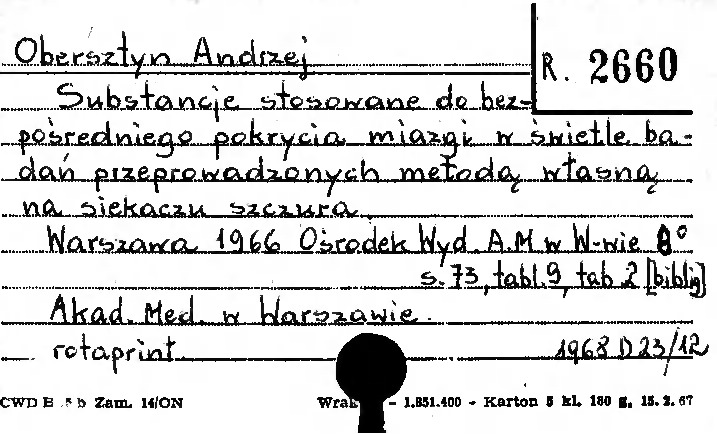 Obersztyn Andrzej
R. 2660
Substancje stosowane do bez-
pośredniego pokrycia miazgi w świetle ba-
dań przeprowadzonych metodą własną
na siekaczu szczura.
Warszawa 1966 Ośrodek Wyd. A.M w W-wie 8°
s. 73, tabl. 9, tab. 2 [biblig]
Akad. Med. w Warszawie.
rotaprint
1968 D 23/12
CWD E b Zam. 14/ON
- 1.851.400 - Karton 5 kl. 180 g. 15. 2. 67